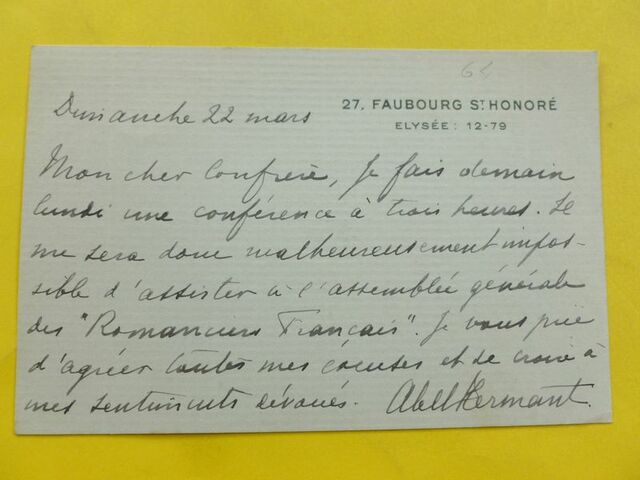 64
27, FAUBOURG ST HONORÉ
ELYSÉE : 12-79
Dimanche 22 mars
Mon cher Confrère, je fais demain
lundi une conférence à trois heures. Il
me sera donc malheureusement impos-
sible d'assister à l'assemblée générale
des "Romanciers Français". Je vous prie
d'agréer toutes mes excuses et de croire à
mes sentiments dévoués. Abel Hermant